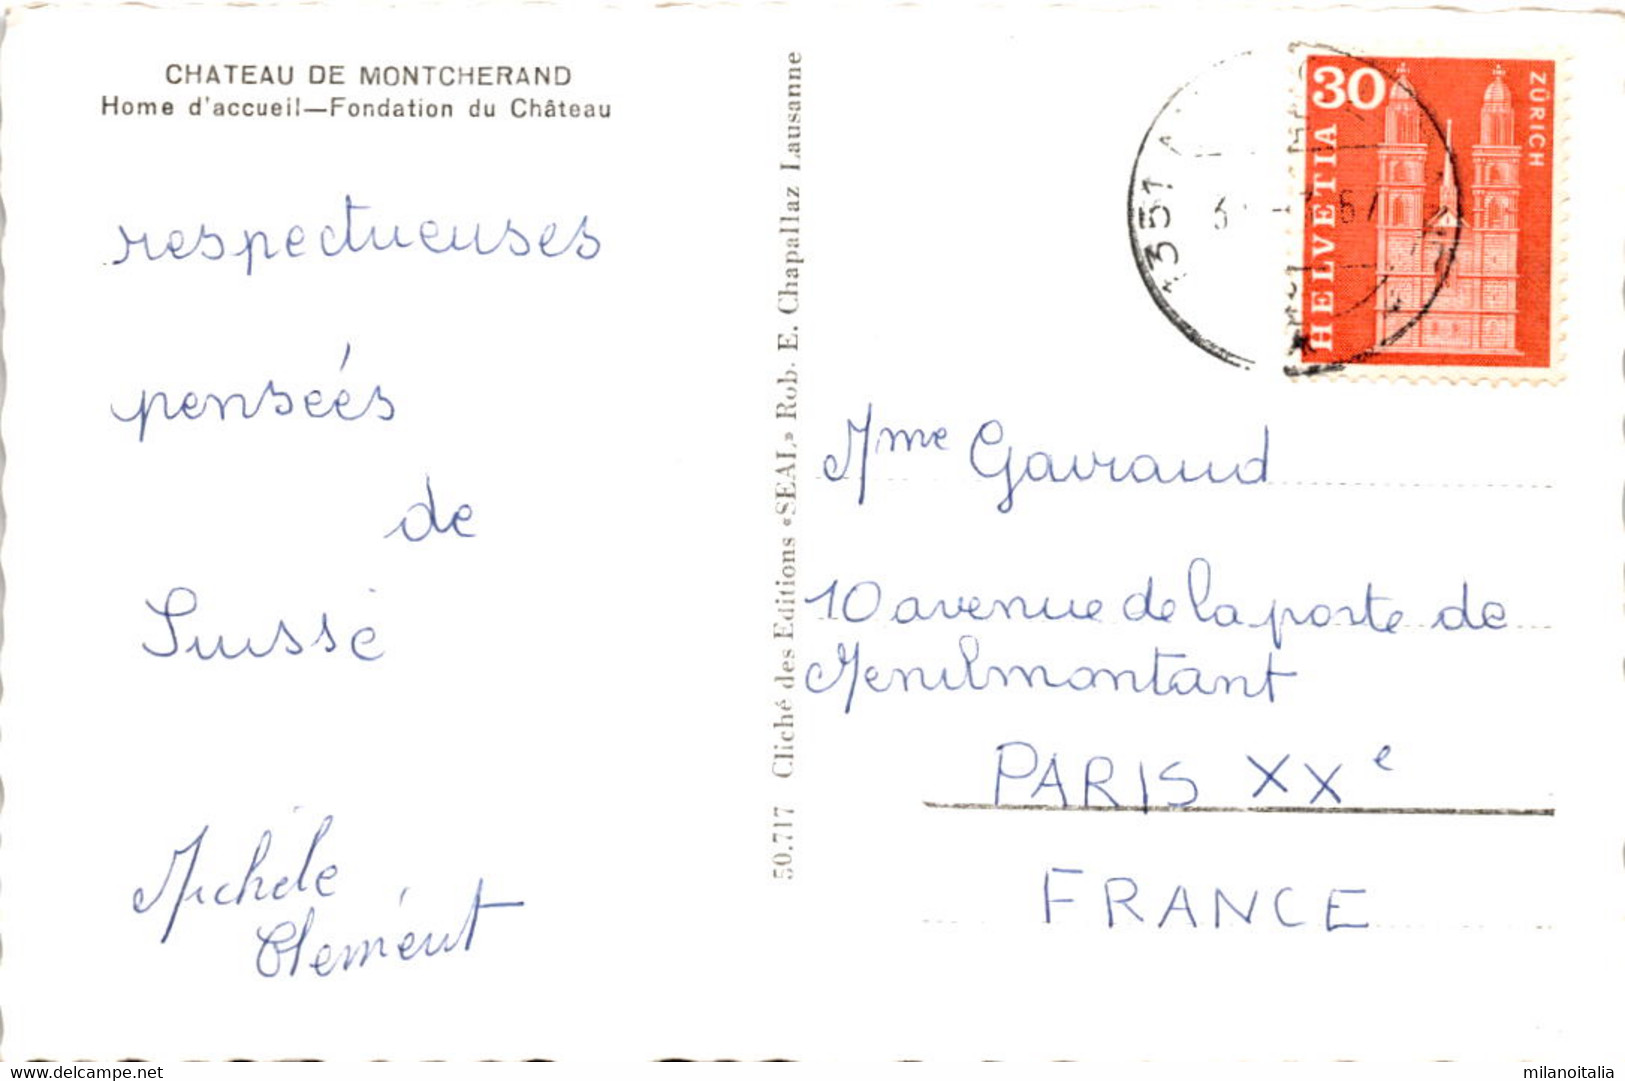 CHATEAU DE MONTCHERAND
Home d'accueil—Fondation du Château
respectueuses
pensées
de
Suisse
Michèle
Clément
50.717 Cliché des Editions «SEAL» Rob. E. Chapallaz Lausanne
30
HELVETIA
ZÜRICH
1351
Mme Gavraud
10 avenue de la porte de
Menilmontant
PARIS XXe
FRANCE
milanoitalia